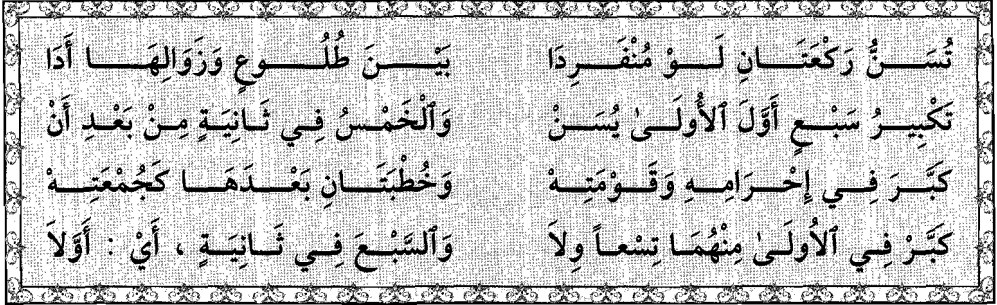 تُسَنُّ رَكْعَتَانِ لَوْ مُنْفَرِدَا بَيْنَ طُلُوعٍ وَزَوَالِهَا أَدَا
تَكْبِيرُ سَبْعٍ أَوَّلَ ٱلأُولَىٰ يُسَنْ وَٱلْخَمْسُ فِي ثَانِيَةٍ مِنْ بَعْدِ أَنْ
كَبَّرَ فِي إِحْرَامِهِ وَقَوْمَتِهْ وَخُطْبَتَانِ بَعْدَهَا كَجُمْعَتِهْ
كَبِّرْ فِي ٱلأُولَىٰ مِنْهُمَا تِسْعاً وِلاَ وَٱلسَّبْعَ فِي ثَانِيَةٍ ، أَيْ : أَوَّلاَ